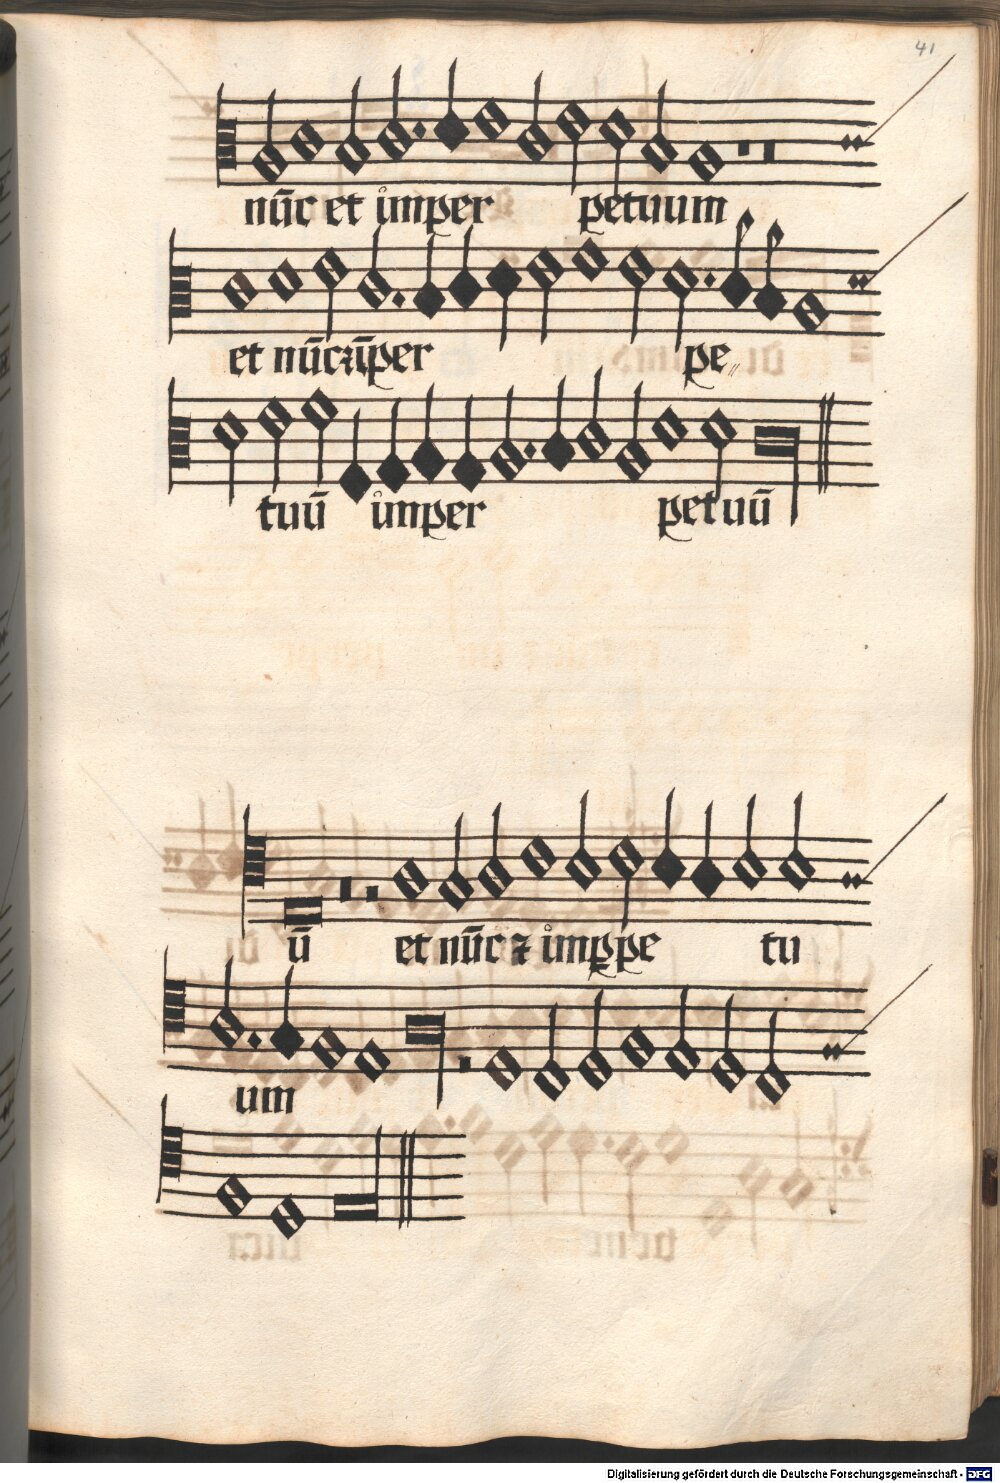 41
nūc et imper petuum
et nūc ꝛ īper pe〃
tuū imper petuū
ū et nūc ꝛ imꝑpe tu
um
Digitalisierung gefördert durch die Deutsche Forschungsgemeinschaft - DFG